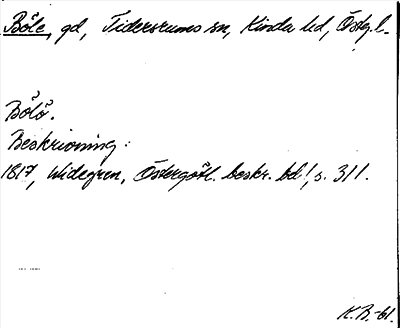 Böle, gd, Tidersrums sn, Kinda hd, Östg.l.
Bölö.
Beskrivning:
1817, Widegren, Östergötl. beskr. bd 1, s. 311.
K.B.-61.